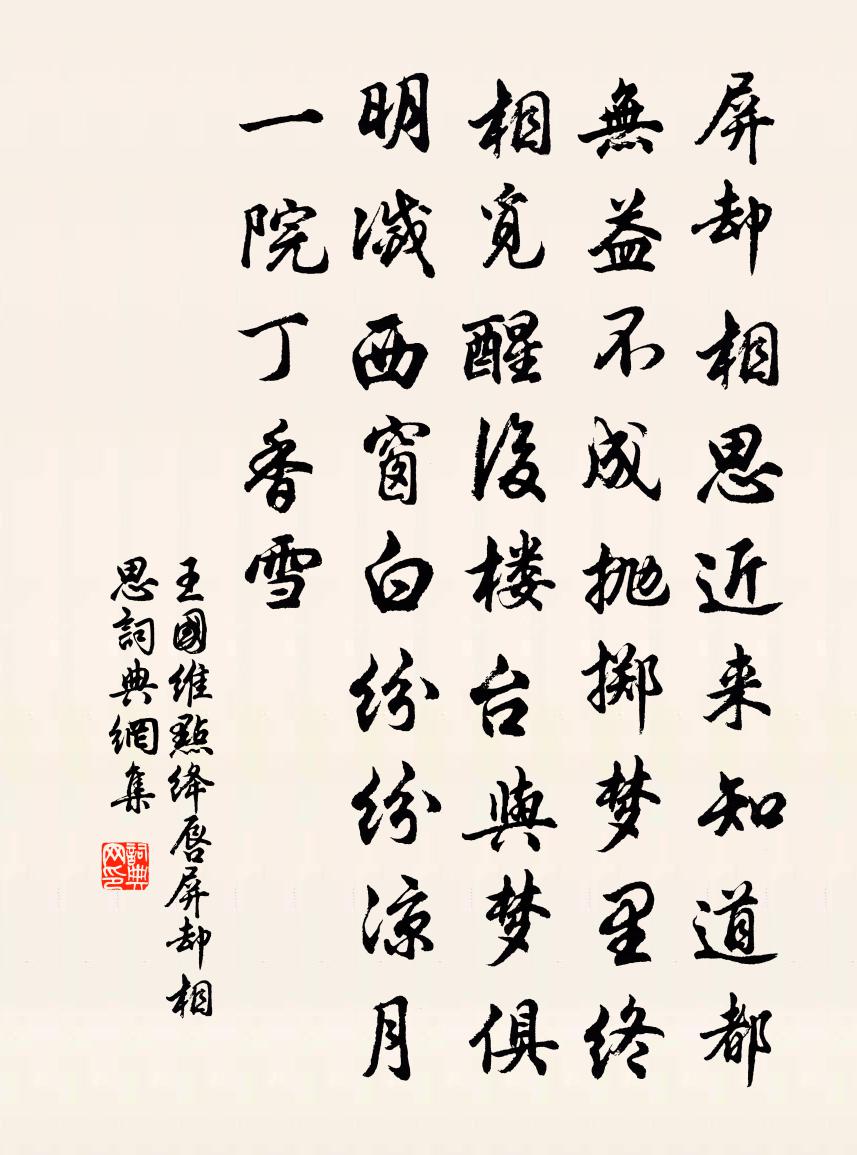 屏却相思近来知道都
無益不成抛掷梦里终
相覓醒後楼台與梦俱
明滅西窗白纷纷涼月
一院丁香雪
王國维點绛唇屏却相
思詞典網集
詞典网印